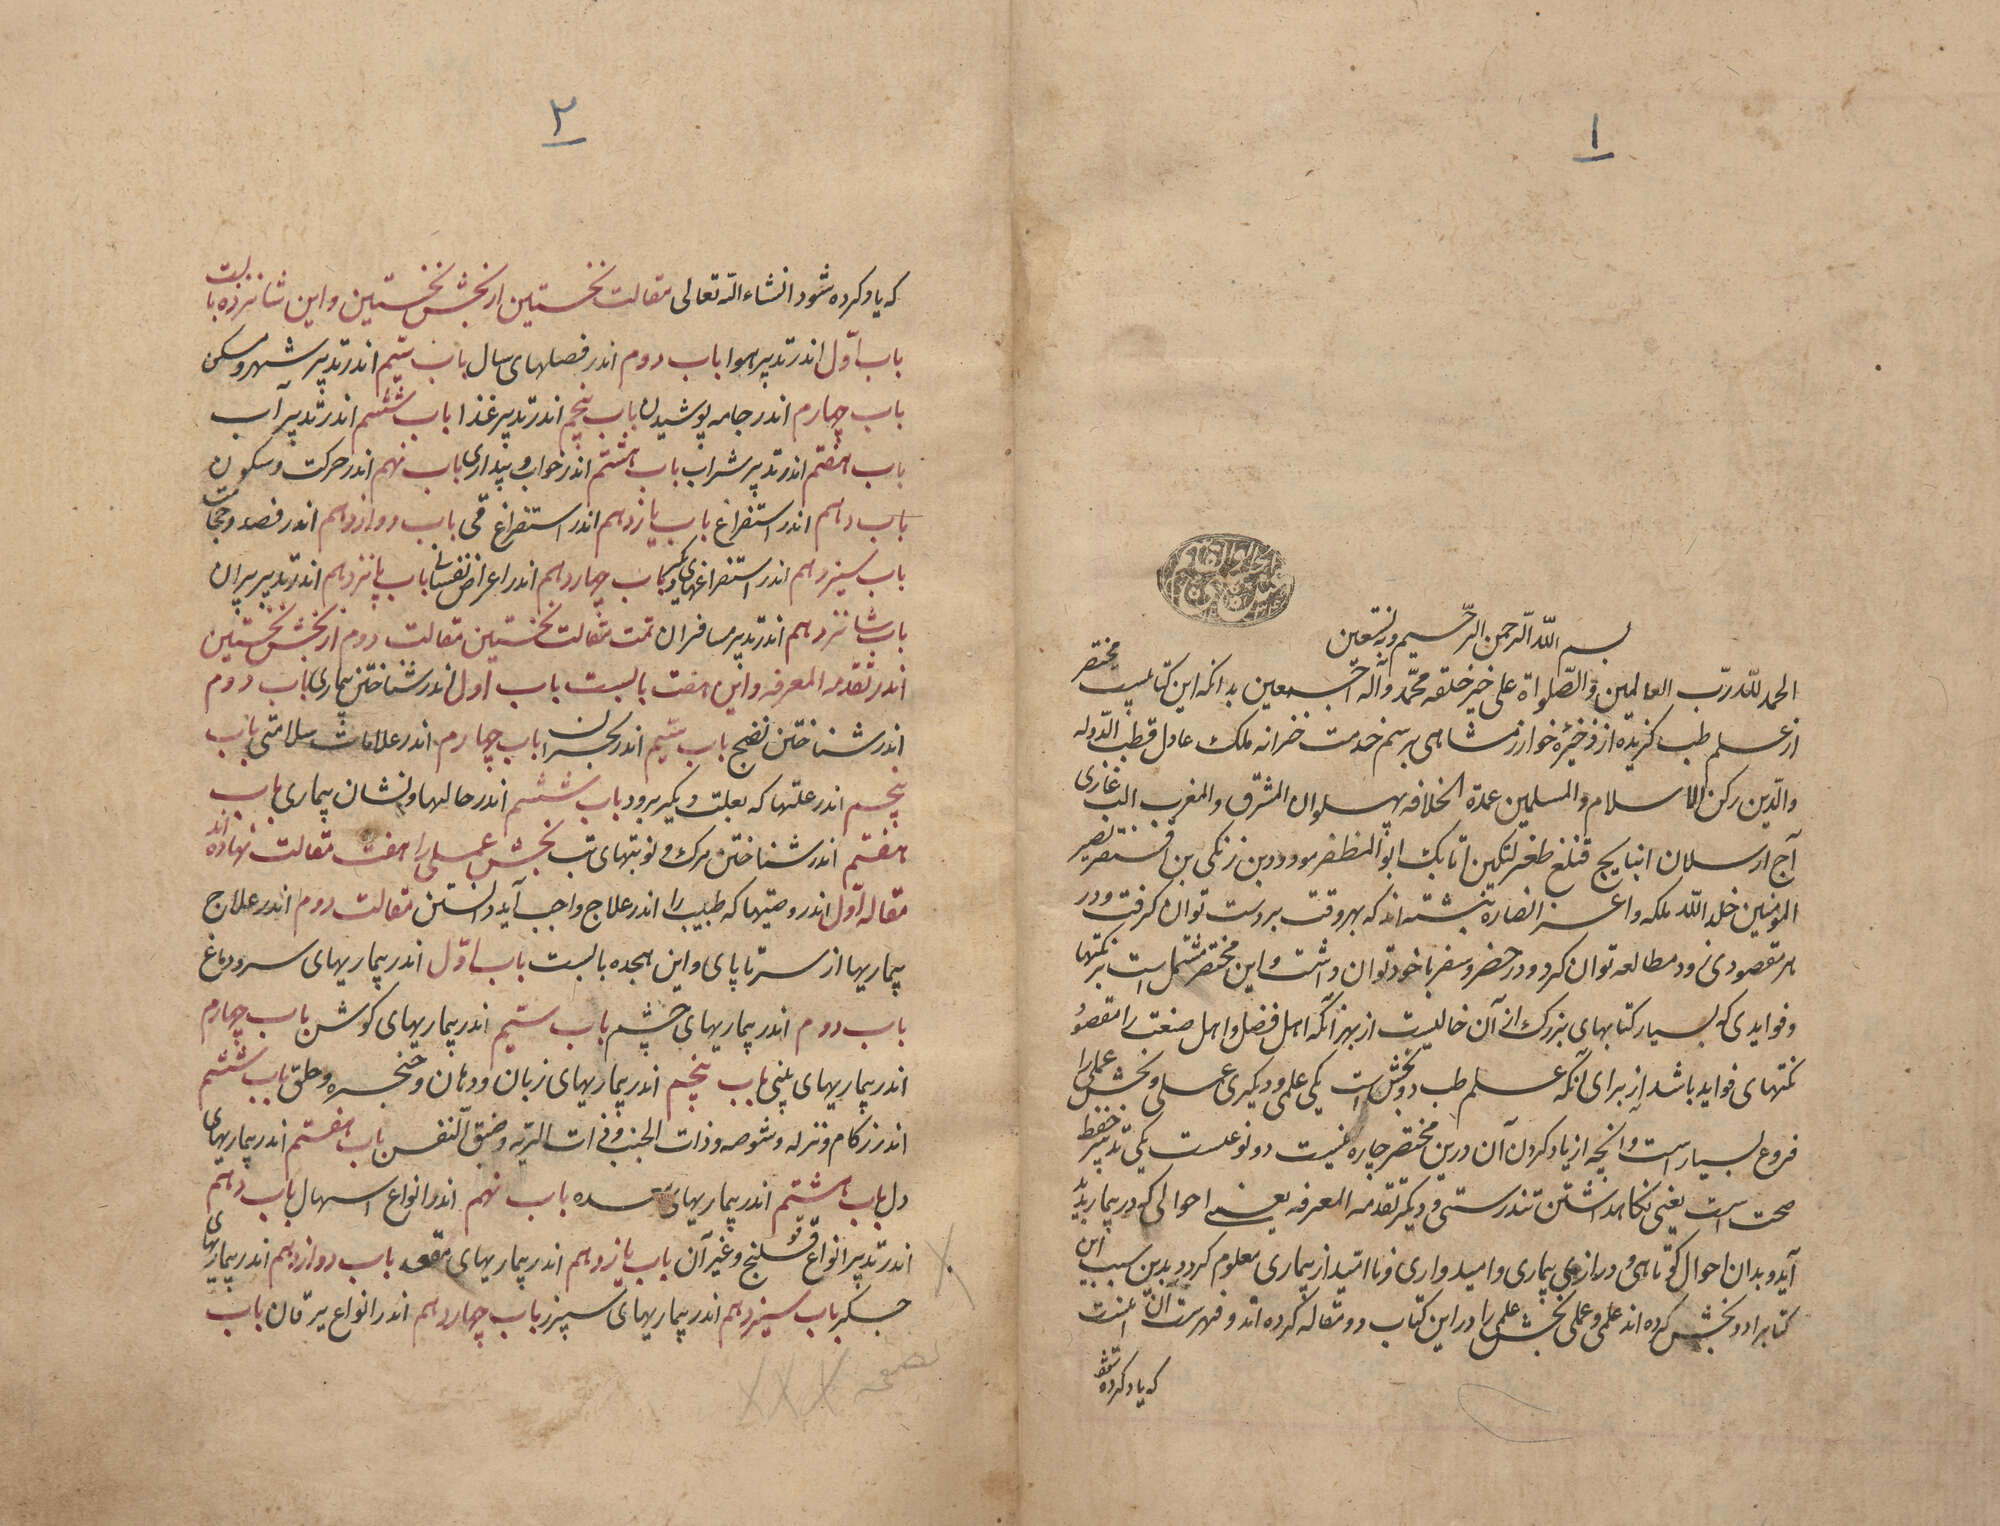 ۱
بسم الله الرحمن الرحیم وبه نستعین
الحمد لله رب العالمین والصلواة علی خیر خلقه محمد وآله اجمعین بدانکه این کتابیست مختصر
از علم طب گزیده از ذخیرهٔ خوارزمشاهی برسم خدمت خزانه ملک عادل قطب الدوله
والدین رکن الاسلام والمسلمین عمدة الخلافه پهلوان المشرق والمغرب الب غازی
آج ارسلان اینانج قتلغ طغرلتکین اتابک ابوالمظفر مودود بن زنگی بن نصیر
المومنین خلد الله ملکه واعز انصاره نبشته اند که بهر وقت بردست توان گرفت ودر
هر مقصودی زود مطالعه توان کرد ودر حضر وسفر باخود توان داشت واین مختصر مشتمل است بر نکتها
وفوایدی که بسیار کتابهای بزرک از آن خالیست از بهر آنکه اهل فضل واهل صنعت را مقصود
نکتهای فواید باشد از برای آنکه علم طب دو بخش است یکی علمی ودیگری عملی وبخش عملی را
فروع بسیار است وانچه از یاد کردن آن درین مختصر چاره نیست دو نوعست یکی تدبیر حفظ
صحت است یعنی نگاهداشتن تندرستی ودیگر تقدمه المعرفه یعنی احوالی که در بیمار پدید
آید وبدان احوال کوتاهی ودرازی بیماری وامیدواری وناامید از بیماری معلوم گردد بدین سبب این
کتابرا دو بخش کرده اند علمی وعملی بخش علمی را در این کتاب دو مقاله کرده اند وفهرست آن اینست
که یاد کرده شود
۲
که یاد کرده شود انشاء الله تعالی مقالت نخستین از بخش نخستین واین شانزده بابست
باب اول اندر تدبیر هوا باب دوم اندر فصلهای سال باب سیم اندر تدبیر شهر ومسکن
باب چهارم اندر جامه پوشیدن باب پنجم اندر تدبیر غذا باب ششم اندر تدبیر آب
باب هفتم اندر تدبیر شراب باب هشتم اندر خواب وبیداری باب نهم اندر حرکت وسکون
باب دهم اندر استفراغ باب یازدهم اندر استفراغ قی باب دوازدهم اندر فصد وحجامت
باب سیزدهم اندر استفراغهای دیگر باب چهاردهم اندر اعراض نفسانی باب پانزدهم اندر تدبیر پیران
باب شانزدهم اندر تدبیر مسافران تمت مقالت نخستین مقالت دوم از بخش نخستین
اندر تقدمه المعرفه واین هفت بابست باب اول اندر شناختن بیماری باب دوم
اندر شناختن نضج باب سیم اندر بحران باب چهارم اندر علامات سلامتی باب
پنجم اندر علتها که بعلت دیگر برود باب ششم اندر حالها ونشان بیماری باب
هفتم اندر شناختن مرک ونوبتهای تب بخش عملی را هفت مقالت نهاده اند
مقاله اول اندر وصیتها که طبیب را اندر علاج واجب آید دانستن مقالت دوم اندر علاج
بیماریها از سر تا پای واین هجده بابست باب اول اندر بیماریهای سر ودماغ
باب دوم اندر بیماریهای چشم باب سیم اندر بیماریهای گوش باب چهارم
اندر بیماریهای بینی باب پنجم اندر بیماریهای زبان ودهان وحنجره وحلق باب ششم
اندر زکام ونزله وشوصه وذات الجنب وذات الریه وضیق النفس باب هفتم اندر بیماریهای
دل باب هشتم اندر بیماریهای معده باب نهم اندر انواع اسهال باب دهم
اندر تدبیر انواع قولنج وغیر آن باب یازدهم اندر بیماریهای مقعد باب دوازدهم اندر بیماریهای
جگر باب سیزدهم اندر بیماریهای سپرز باب چهاردهم اندر انواع یرقان باب